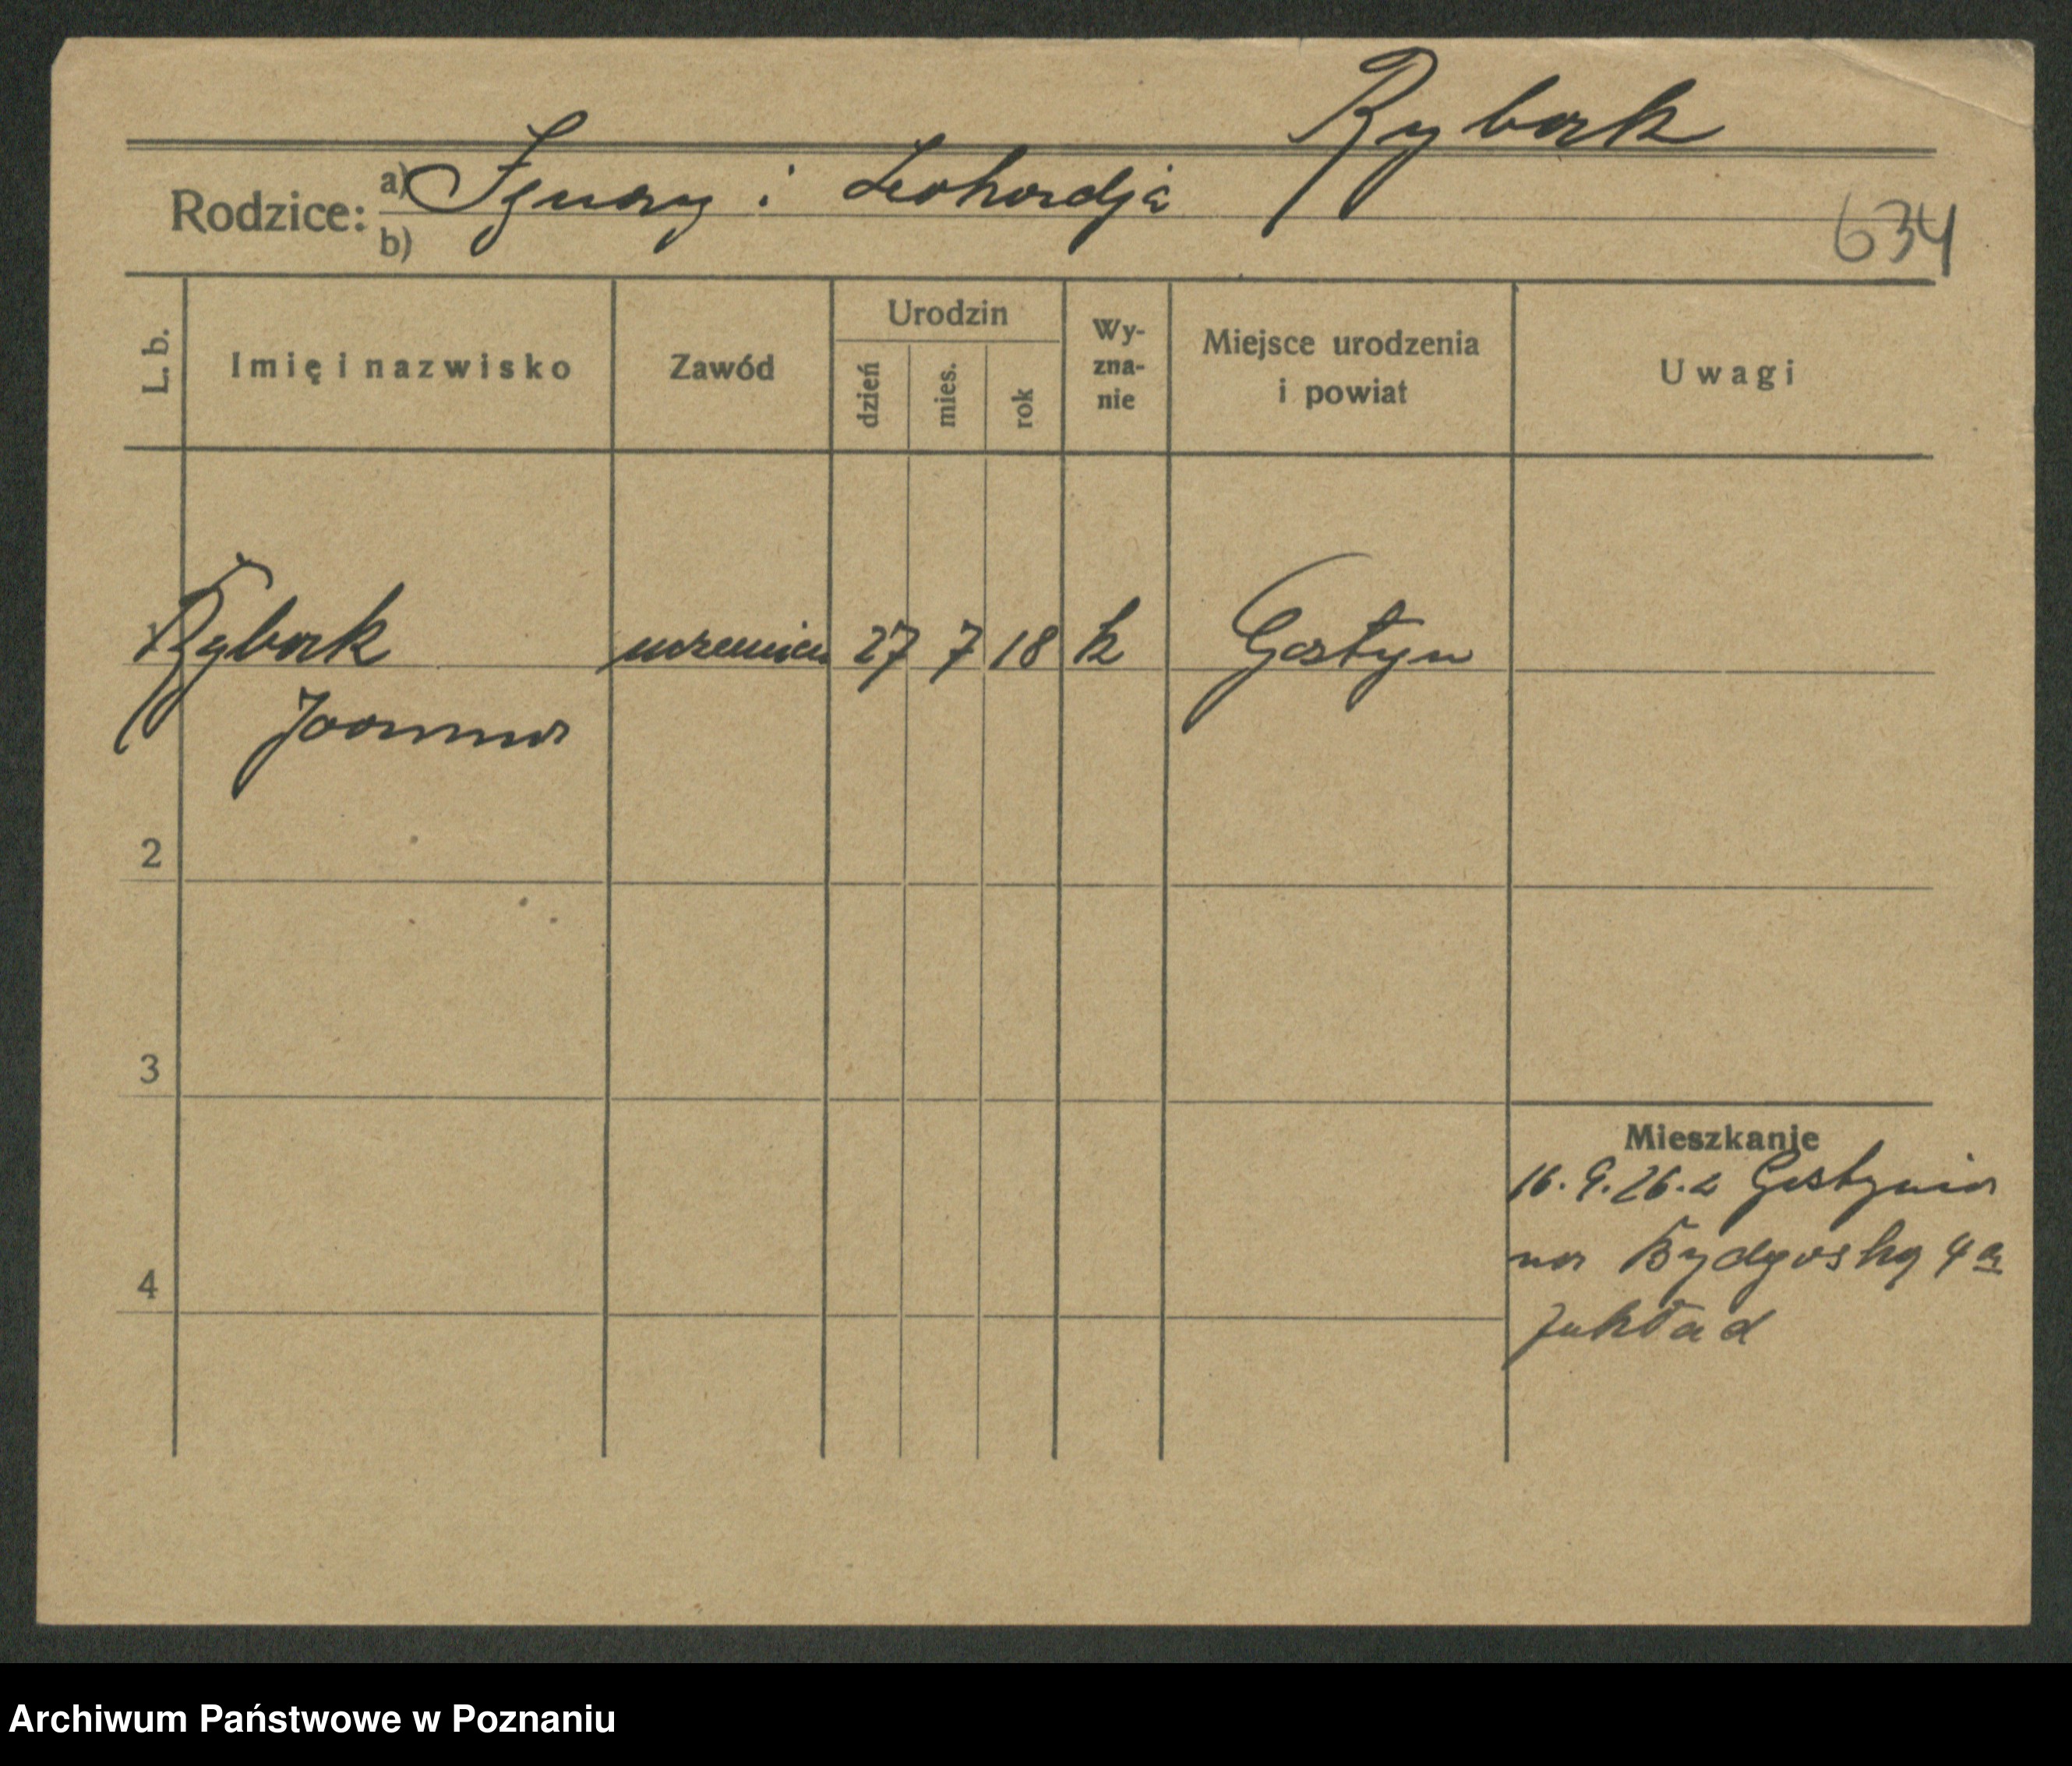 Rybak
Rodzice: a) Ignacy i Leokardja
b)
634
L. b. Imię i nazwisko Zawód Urodzin dzień mies. rok Wy-zna-nie Miejsce urodzenia i powiat Uwagi
1 Rybak 27 7 18 k Gostyn
Joanna
2
3
Mieszkanie
16.9.26. z Gostynia
na Bydgoską 4a
4
Zakład
Archiwum Państwowe w Poznaniu